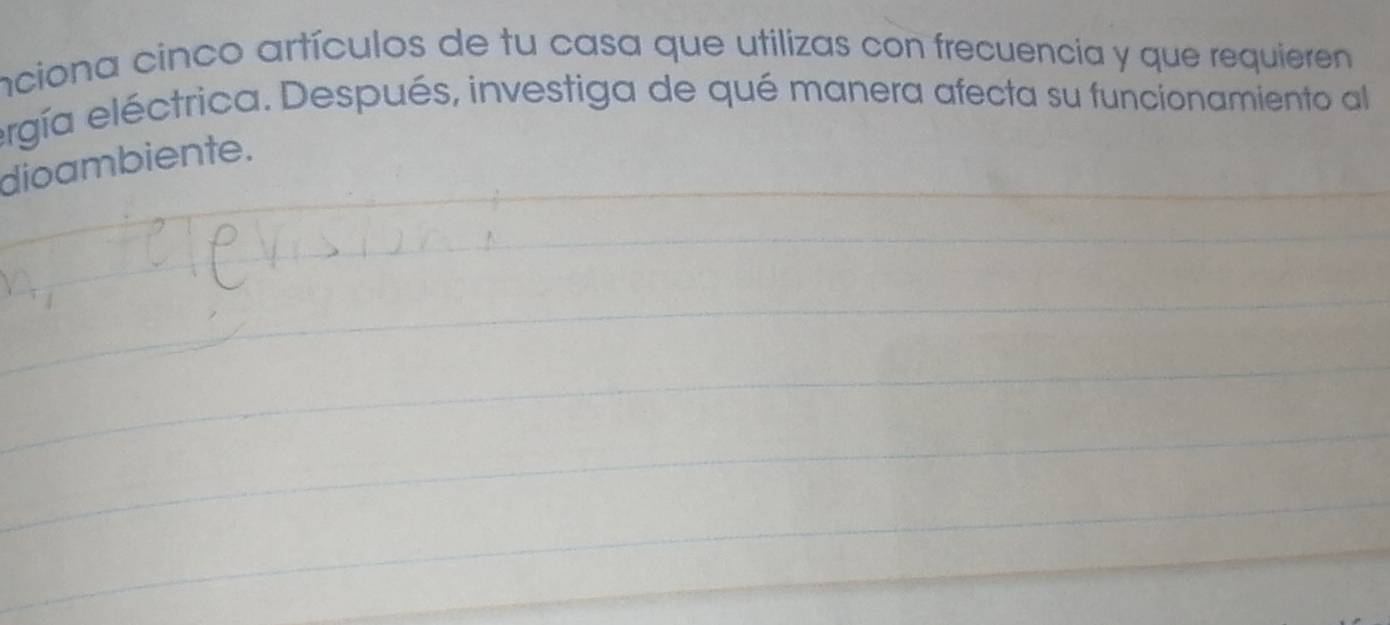 nciona cinco artículos de tu casa que utilizas con frecuencia y que requieren
ergía eléctrica. Después, investiga de qué manera afecta su funcionamiento al
dioambiente.
television